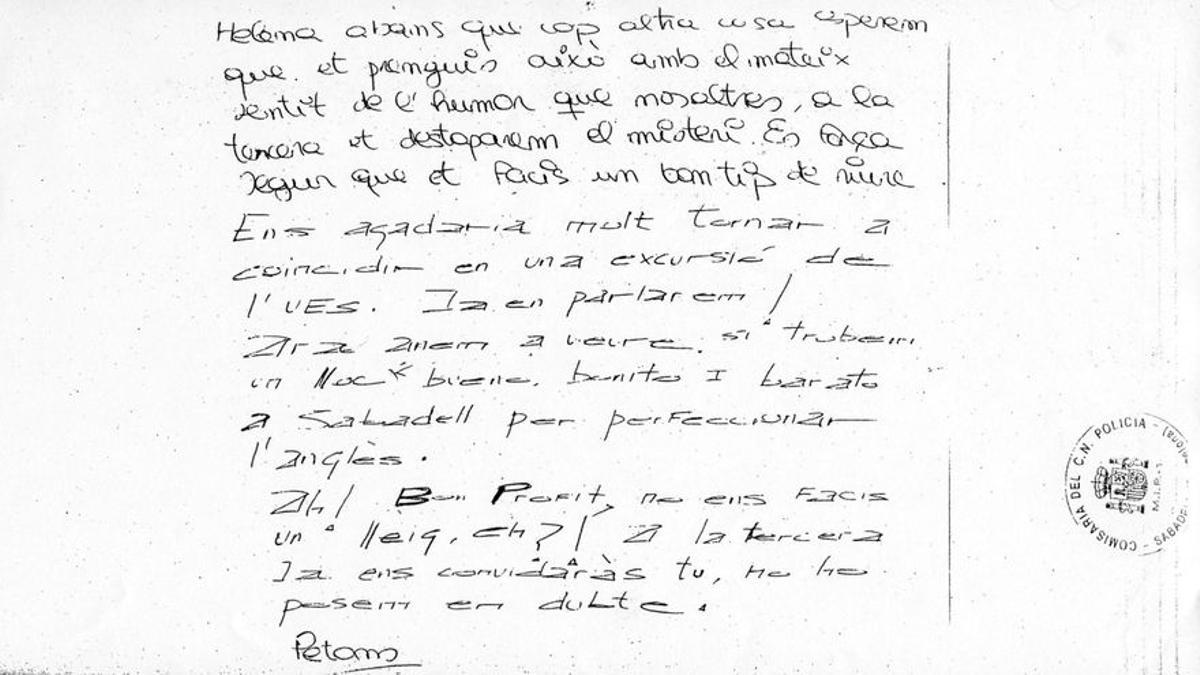 Helena abans que cap altra cosa esperem
que et prenguis això amb el mateix
sentit de l'humor que nosaltres, a la
tercera et destaparem el misteri. Es força
segur que et facis un bon tip de riure
Ens agadaria molt tornar a
coincidir en una excursió de
l'UES. Ja en parlarem!
Ara anem a veure si trobem
un lloc bueno, bonito I barato
a Sabadell per perfeccionar
l'anglès.
Ah! Bon Profit, no ens facis
un lleig, eh?! A la tercera
Ja ens convidaràs tu, no ho
posem en dubte.
Petons
COMISARIA DEL C.N. POLICIA -